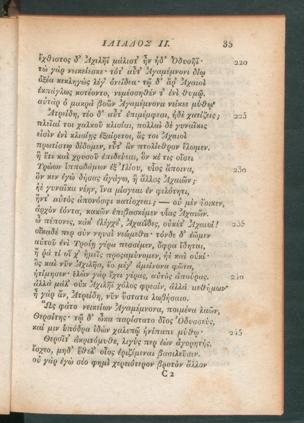 ΙΛΙΑΔΟΣ II. 35
ἔχθιστος δ' Ἀχιλῆϊ μάλιστ' ἦν ἠδ' Ὀδυσῆϊ· 220
τὼ γὰρ νεικείεσκε· τότ' αὖτ' Ἀγαμέμνονι δίῳ
ὀξέα κεκληγὼς λέγ' ὀνείδεα· τῷ δ' ἄρ' Ἀχαιοὶ
ἐκπάγλως κοτέοντο, νεμέσσηθέν τ' ἐνὶ θυμῷ.
αὐτὰρ ὁ μακρὰ βοῶν Ἀγαμέμνονα νείκεε μύθῳ·
Ἀτρείδη, τέο δ' αὖτ' ἐπιμέμφεαι, ἠδὲ χατίζεις; 225
πλεῖαί τοι χαλκοῦ κλισίαι, πολλαὶ δὲ γυναῖκες
εἰσὶν ἐνὶ κλισίῃς ἐξαίρετοι, ἅς τοι Ἀχαιοὶ
πρωτίστῳ δίδομεν, εὖτ' ἂν πτολίεθρον ἕλωμεν.
ἦ ἔτι καὶ χρυσοῦ ἐπιδεύεαι, ὅν κέ τις οἴσει
Τρώων ἱπποδάμων ἐξ Ἰλίου, υἷος ἄποινα, 230
ὅν κεν ἐγὼ δήσας ἀγάγω, ἢ ἄλλος Ἀχαιῶν;
ἠὲ γυναῖκα νέην, ἵνα μίσγεαι ἐν φιλότητι,
ἥντ' αὐτὸς ἀπονόσφι κατίσχεαι; — οὐ μὲν ἔοικεν,
ἀρχὸν ἐόντα, κακῶν ἐπιβασκέμεν υἷας Ἀχαιῶν.
ὦ πέπονες, κάκ' ἐλέγχε', Ἀχαιΐδες, οὐκέτ' Ἀχαιοί! 235
οἴκαδέ περ σὺν νηυσὶ νεώμεθα· τόνδε δ' ἐῶμεν
αὐτοῦ ἐνὶ Τροίῃ γέρα πεσσέμεν, ὄφρα ἴδηται,
ἤ ῥά τί οἱ χ' ἡμεῖς προσαμύνομεν, ἠὲ καὶ οὐκί·
ὃς καὶ νῦν Ἀχιλῆα, ἕο μέγ' ἀμείνονα φῶτα,
ἠτίμησεν· ἑλὼν γὰρ ἔχει γέρας, αὐτὸς ἀπούρας. 240
ἀλλὰ μάλ' οὐκ Ἀχιλῆϊ χόλος φρεσὶν, ἀλλὰ μεθήμων·
ἦ γὰρ ἂν, Ἀτρείδη, νῦν ὕστατα λωβήσαιο.
Ὣς φάτο νεικείων Ἀγαμέμνονα, ποιμένα λαῶν,
Θερσίτης· τῷ δ' ὦκα παρίστατο δῖος Ὀδυσσεὺς,
καί μιν ὑπόδρα ἰδὼν χαλεπῷ ἠνίπαπε μύθῳ· 245
Θερσῖτ' ἀκριτόμυθε, λιγύς περ ἐὼν ἀγορητὴς,
ἴσχεο, μηδ' ἔθελ' οἶος ἐριζέμεναι βασιλεῦσιν.
οὐ γὰρ ἐγὼ σέο φημὶ χερειότερον βροτὸν ἄλλον
C 2